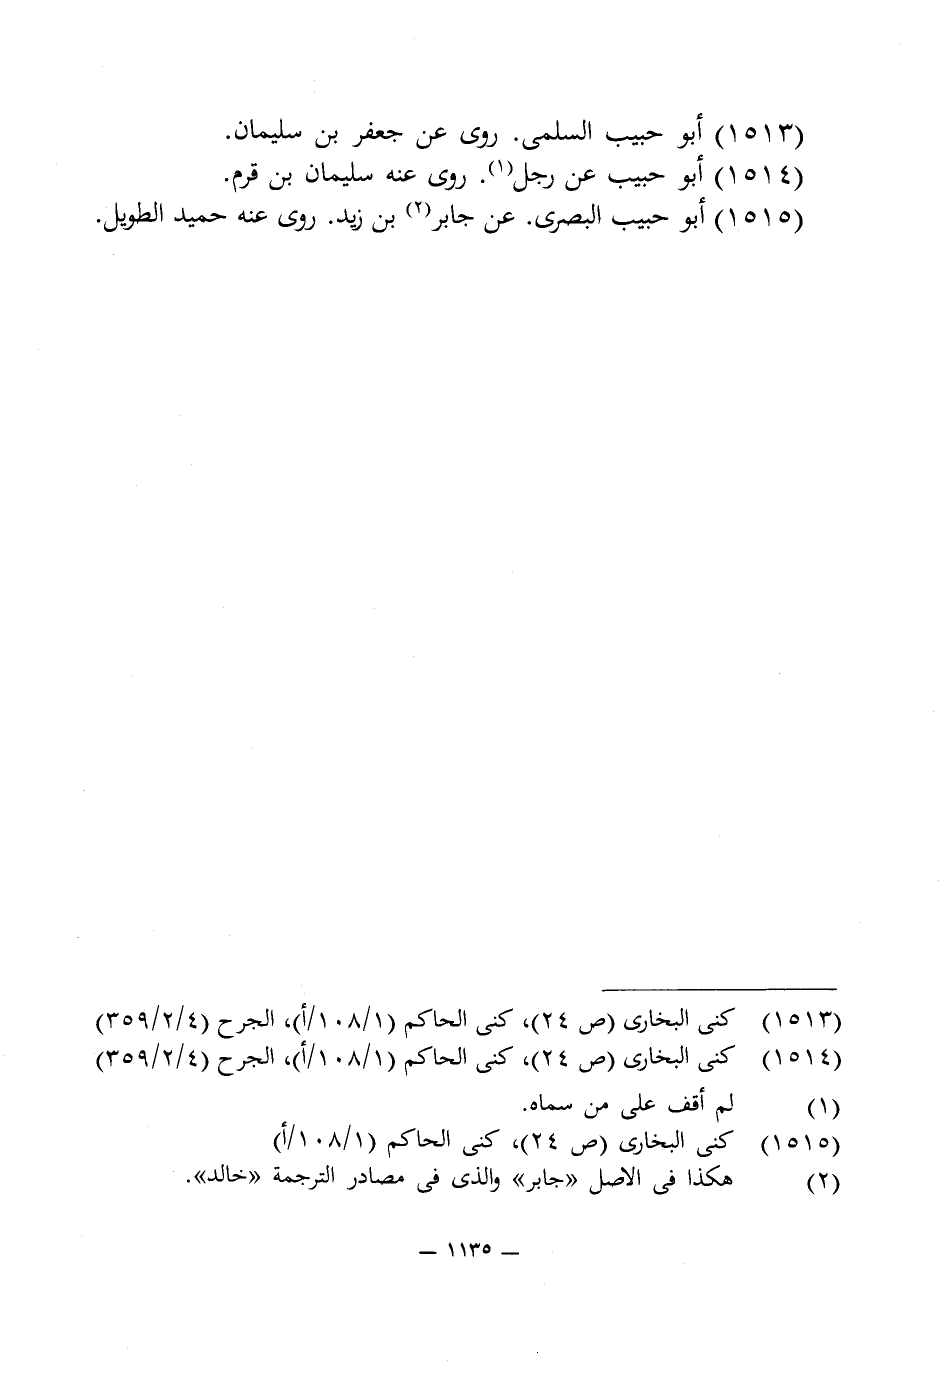 (١٥١٣) أبو حبيب السلمى. روى عن جعفر بن سليمان.
(١٥١٤) أبو حبيب عن رجل(١). روى عنه سليمان بن قرم.
(١٥١٥) أبو حبيب البصرى. عن جابر(٢) بن زيد. روى عنه حميد الطويل.
(١٥١٣) كنى البخارى (ص ٢٤)، كنى الحاكم (١٠٨/١/أ)، الجرح (٣٥٩/٢/٤)
(١٥١٤) كنى البخارى (ص ٢٤)، كنى الحاكم (١٠٨/١/أ)، الجرح (٣٥٩/٢/٤)
(١) لم أقف على من سماه.
(١٥١٥) كنى البخارى (ص ٢٤)، كنى الحاكم (١٠٨/١/أ)
(٢) هكذا فى الاصل «جابر» والذى فى مصادر الترجمة «خالد».
— ١١٣٥ —